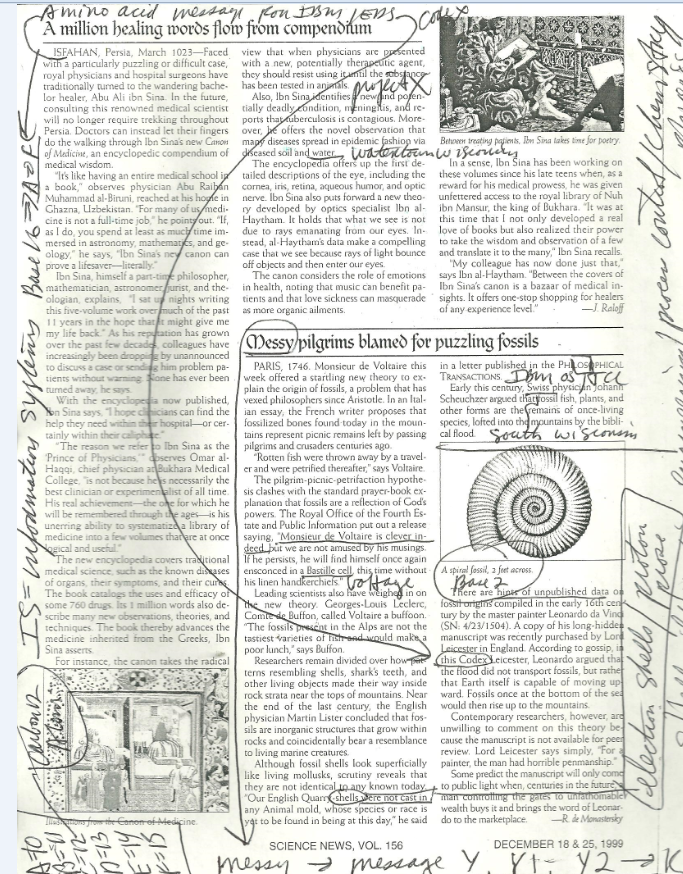 Amino acid message Ron IBM
codex
A million healing words flow from compendium
ISFAHAN, Persia, March 1023—Faced
with a particularly puzzling or difficult case,
royal physicians and hospital surgeons have
traditionally turned to the wandering bache-
lor healer, Abu Ali ibn Sina. In the future,
consulting this renowned medical scientist
will no longer require trekking throughout
Persia. Doctors can instead let their fingers
do the walking through Ibn Sina's new Canon
of Medicine, an encyclopedic compendium of
medical wisdom.
"It's like having an entire medical school in
a book," observes physician Abu Raihan
Muhammad al-Biruni, reached at his home in
Ghazna, Uzbekistan. "For many of us, medi-
cine is not a full-time job," he points out. "If,
as I do, you spend at least as much time im-
mersed in astronomy, mathematics, and ge-
ology," he says, "Ibn Sina's new canon can
prove a lifesaver—literally."
Ibn Sina, himself a part-time philosopher,
mathematician, astronomer, jurist, and the-
ologian, explains, "I sat up nights writing
this five-volume work over much of the past
11 years in the hope that it might give me
my life back." As his reputation has grown
over the past few decades, colleagues have
increasingly been dropping by unannounced
to discuss a case or sending him problem pa-
tients without warning. None has ever been
turned away, he says.
With the encyclopedia now published,
Ibn Sina says, "I hope clinicians can find the
help they need within their hospital—or cer-
tainly within their caliphate."
"The reason we refer to Ibn Sina as the
'Prince of Physicians,'" observes Omar al-
Haqqi, chief physician at Bukhara Medical
College, "is not because he is necessarily the
best clinician or experimentalist of all time.
His real achievement—the one for which he
will be remembered through the ages—is his
unerring ability to systematize a library of
medicine into a few volumes that are at once
logical and useful."
The new encyclopedia covers traditional
medical science, such as the known diseases
of organs, their symptoms, and their cures.
The book catalogs the uses and efficacy of
some 760 drugs. Its 1 million words also de-
scribe many new observations, theories, and
techniques. The book thereby advances the
medicine inherited from the Greeks, Ibn
Sina asserts.
For instance, the canon takes the radical
Illustrations from the Canon of Medicine.
view that when physicians are presented
with a new, potentially therapeutic agent,
they should resist using it until the substance
has been tested in animals.
project X
Also, Ibn Sina identifies a new and poten-
tially deadly condition, meningitis, and re-
ports that tuberculosis is contagious. More-
over, he offers the novel observation that
many diseases spread in epidemic fashion via
diseased soil and water.
Watertown Wisconsin
The encyclopedia offers up the first de-
tailed descriptions of the eye, including the
cornea, iris, retina, aqueous humor, and optic
nerve. Ibn Sina also puts forward a new theo-
ry developed by optics specialist Ibn al-
Haytham. It holds that what we see is not
due to rays emanating from our eyes. In-
stead, al-Haytham's data make a compelling
case that we see because rays of light bounce
off objects and then enter our eyes.
The canon considers the role of emotions
in health, noting that music can benefit pa-
tients and that love sickness can masquerade
as more organic ailments.
Between treating patients, Ibn Sina takes time for poetry.
In a sense, Ibn Sina has been working on
these volumes since his late teens when, as a
reward for his medical prowess, he was given
unfettered access to the royal library of Nuh
ibn Mansur, the king of Bukhara. "It was at
this time that I not only developed a real
love of books but also realized their power
to take the wisdom and observation of a few
and translate it to the many," Ibn Sina recalls.
"My colleague has now done just that,"
says Ibn al-Haytham. "Between the covers of
Ibn Sina's canon is a bazaar of medical in-
sights. It offers one-stop shopping for healers
of any experience level." —J. Raloff
Messy pilgrims blamed for puzzling fossils
PARIS, 1746. Monsieur de Voltaire this
week offered a startling new theory to ex-
plain the origin of fossils, a problem that has
vexed philosophers since Aristotle. In an Ital-
ian essay, the French writer proposes that
fossilized bones found today in the moun-
tains represent picnic remains left by passing
pilgrims and crusaders centuries ago.
"Rotten fish were thrown away by a travel-
er and were petrified thereafter," says Voltaire.
The pilgrim-picnic-petrifaction hypothe-
sis clashes with the standard prayer-book ex-
planation that fossils are a reflection of God's
powers. The Royal Office of the Fourth Es-
tate and Public Information put out a release
saying, "Monsieur de Voltaire is clever in-
deed, but we are not amused by his musings.
If he persists, he will find himself once again
ensconced in a Bastille cell, this time without
his linen handkerchiefs."
Voltage
Leading scientists also have weighed in on
the new theory. Georges-Louis Leclerc,
Comte de Buffon, called Voltaire a buffoon.
"The fossils present in the Alps are not the
tastiest varieties of fish and would make a
poor lunch," says Buffon.
Researchers remain divided over how pat-
terns resembling shells, shark's teeth, and
other living objects made their way inside
rock strata near the tops of mountains. Near
the end of the last century, the English
physician Martin Lister concluded that fos-
sils are inorganic structures that grow within
rocks and coincidentally bear a resemblance
to living marine creatures.
Although fossil shells look superficially
like living mollusks, scrutiny reveals that
they are not identical to any known today.
"Our English Quarry shells were not cast in
any Animal mold, whose species or race is
yet to be found in being at this day," he said
in a letter published in the PHILOSOPHICAL
TRANSACTIONS.
Early this century, Swiss physician Johann
Scheuchzer argued that fossil fish, plants, and
other forms are the remains of once-living
species, lofted into the mountains by the bibli-
cal flood.
South Wisconsin
A spiral fossil, 2 feet across.
Base 2
There are hints of unpublished data on
fossil origins compiled in the early 16th cen-
tury by the master painter Leonardo da Vinci
(SN: 4/23/1504). A copy of his long-hidden
manuscript was recently purchased by Lord
Leicester in England. According to gossip, in
this Codex Leicester, Leonardo argued that
the flood did not transport fossils, but rather
that Earth itself is capable of moving up-
ward. Fossils once at the bottom of the sea
would then rise up to the mountains.
Contemporary researchers, however, are
unwilling to comment on this theory be-
cause the manuscript is not available for peer
review. Lord Leicester says simply, "For a
painter, the man had horrible penmanship."
Some predict the manuscript will only come
to public light when, centuries in the future, a
man controlling the gates to unfathomable
wealth buys it and brings the word of Leonar-
do to the marketplace. —R. de Monastersky
SCIENCE NEWS, VOL. 156
DECEMBER 18 & 25, 1999
messy → message Y, Y1- Y2 →
IS = information systems Base 16
election shells proton